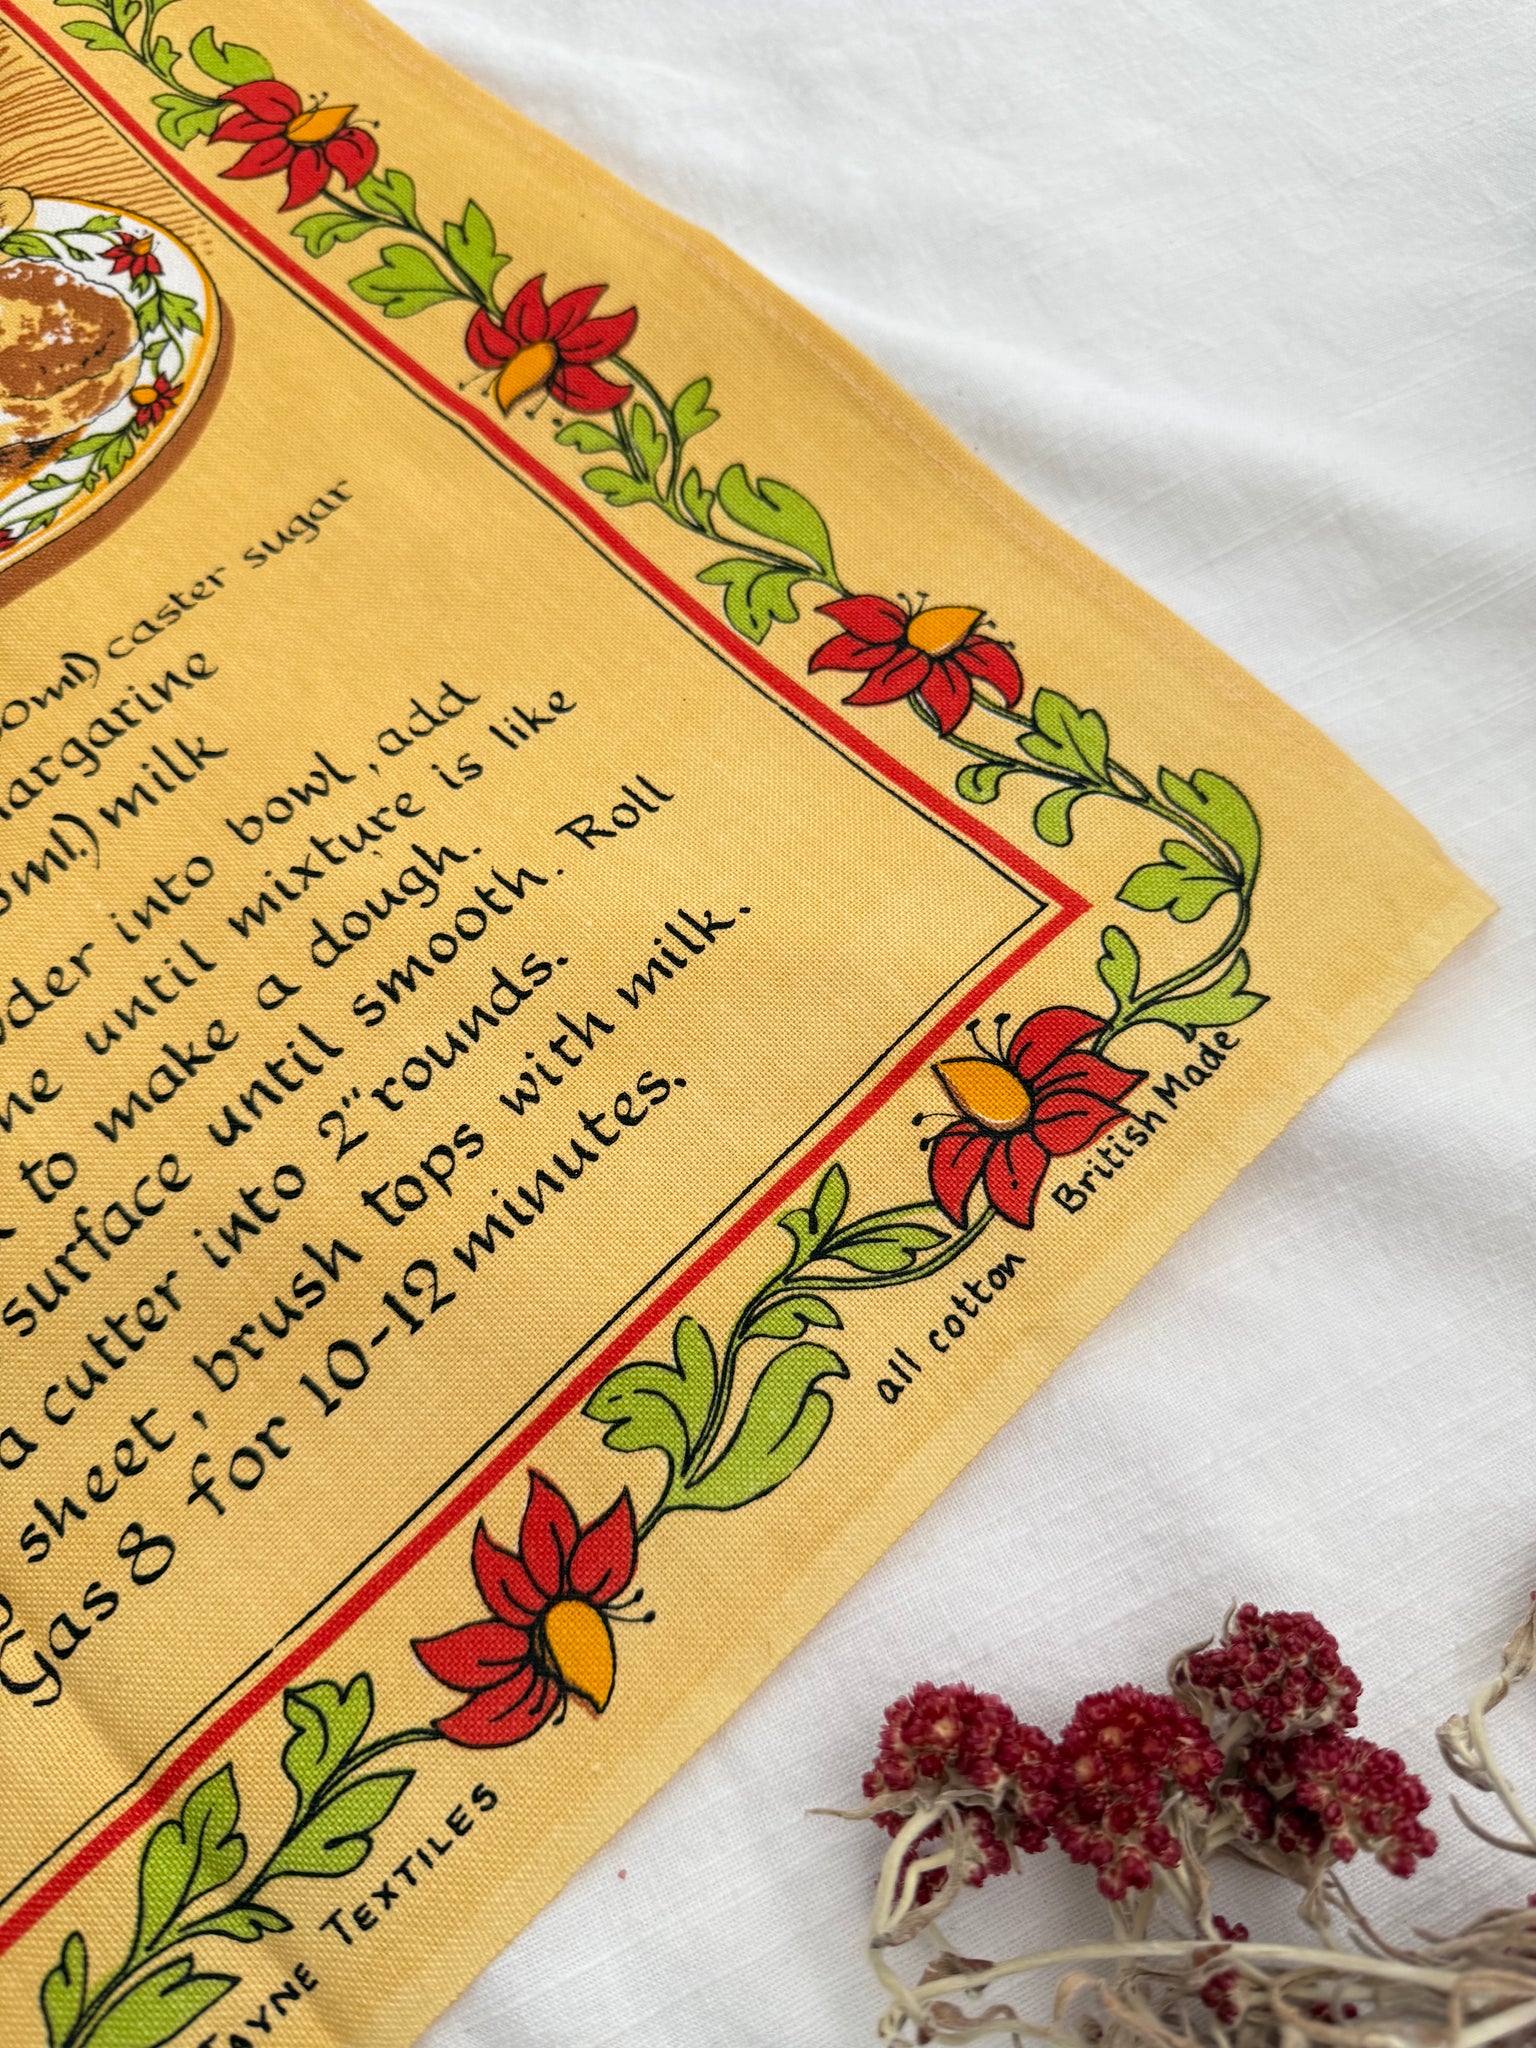 caster sugar
milk
into bowl, add
until mixture is like
to make a dough.
surface until smooth. Roll
a cutter into 2" rounds.
sheet, brush tops with milk.
Gas 8 for 10-12 minutes.
British Made
all cotton
TEXTILES